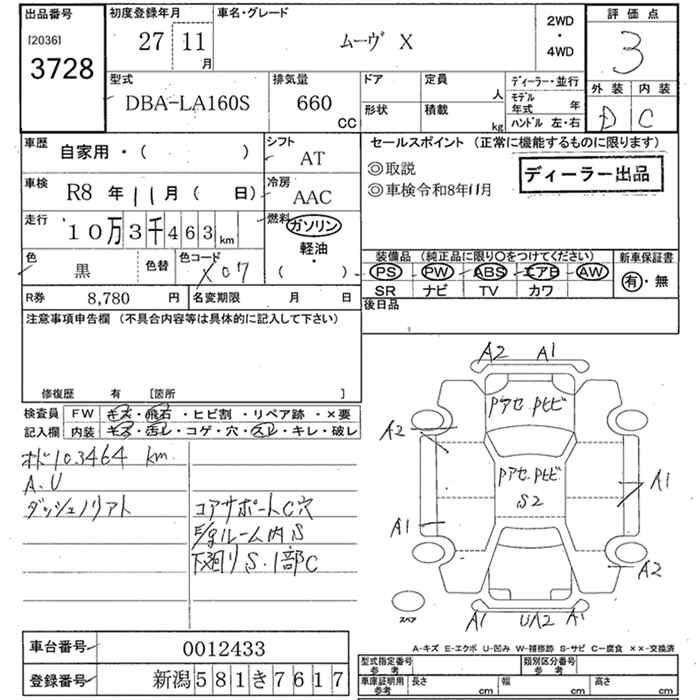 出品番号
[2036]
3728
初度登録年月
27 11 月
車名・グレード
ムーヴ X
2WD
・
4WD
評価点
3
外装 内装
D C
型式
DBA-LA160S
排気量
660 CC
ドア
形状
定員 人
積載 kg
ディーラー・並行
モデル年式 年
ハンドル 左・右
車歴 自家用・( )
シフト AT
車検 R8 年 11 月 ( 日)
冷房 AAC
走行 10万3千463 km
燃料 ガソリン
軽油・
( )
色 黒
色替
色コード X07
R券 8,780 円
名変期限 月 日
セールスポイント (正常に機能するものに限ります)
◎取説
◎車検令和8年11月
ディーラー出品
装備品 (純正品に限り〇をつけてください)
新車保証書
PS PW ABS エアB AW
有・無
SR ナビ TV カワ
後日品
注意事項申告欄 (不具合内容等は具体的に記入して下さい)
修復歴 有 [箇所 ]
検査員
記入欄
FW キズ・飛石・ヒビ割・リペア跡・×要
内装 キズ・汚レ・コゲ・穴・スレ・キレ・破レ
オド103464 km
A.U
ダッシュノリアト
コアサポートC穴
E/gルーム内S
下廻りS.1部C
A2 A1
Pアセ.Pヒビ
A2
Pアセ.Pヒビ
S2
A1
A1
A2
スペア
A1 UA2 A1
A-キズ E-エクボ U-凹み W-補修跡 S-サビ C-腐食 ××-交換済
車台番号 0012433
登録番号 新潟 581 き 7617
型式指定番号
参考
類別区分番号
参考
車庫証明用
参考
長さ cm
幅 cm
高さ cm